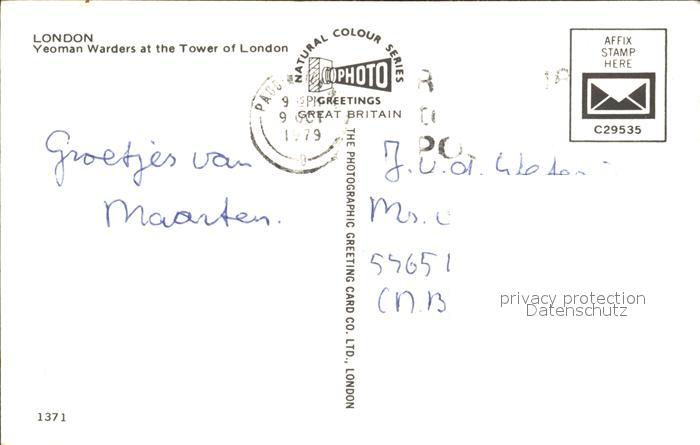 LONDON
Yeoman Warders at the Tower of London
NATURAL COLOUR SERIES
PHOTO
GREETINGS
GREAT BRITAIN
9 PM
9 OCT
1979
AFFIX
STAMP
HERE
C29535
Groetjes van
Maarten.
J.v.d.
54651
privacy protection
Datenschutz
THE PHOTOGRAPHIC GREETING CARD CO. LTD., LONDON
1371